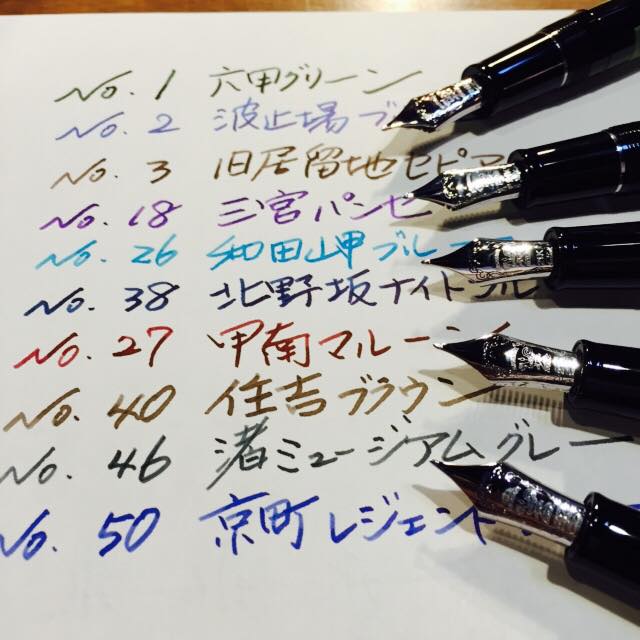 No. 1 六甲グリーン
No. 2 波止場ブ
No. 3 旧居留地セピア
No. 18 三宮パンセ
No. 26 和田岬ブルー
No. 38 北野坂ナイトブル
No. 27 甲南マルーン
No. 40 住吉ブラウン
No. 46 渚ミュージアムグレー
No. 50 京町レジェンド